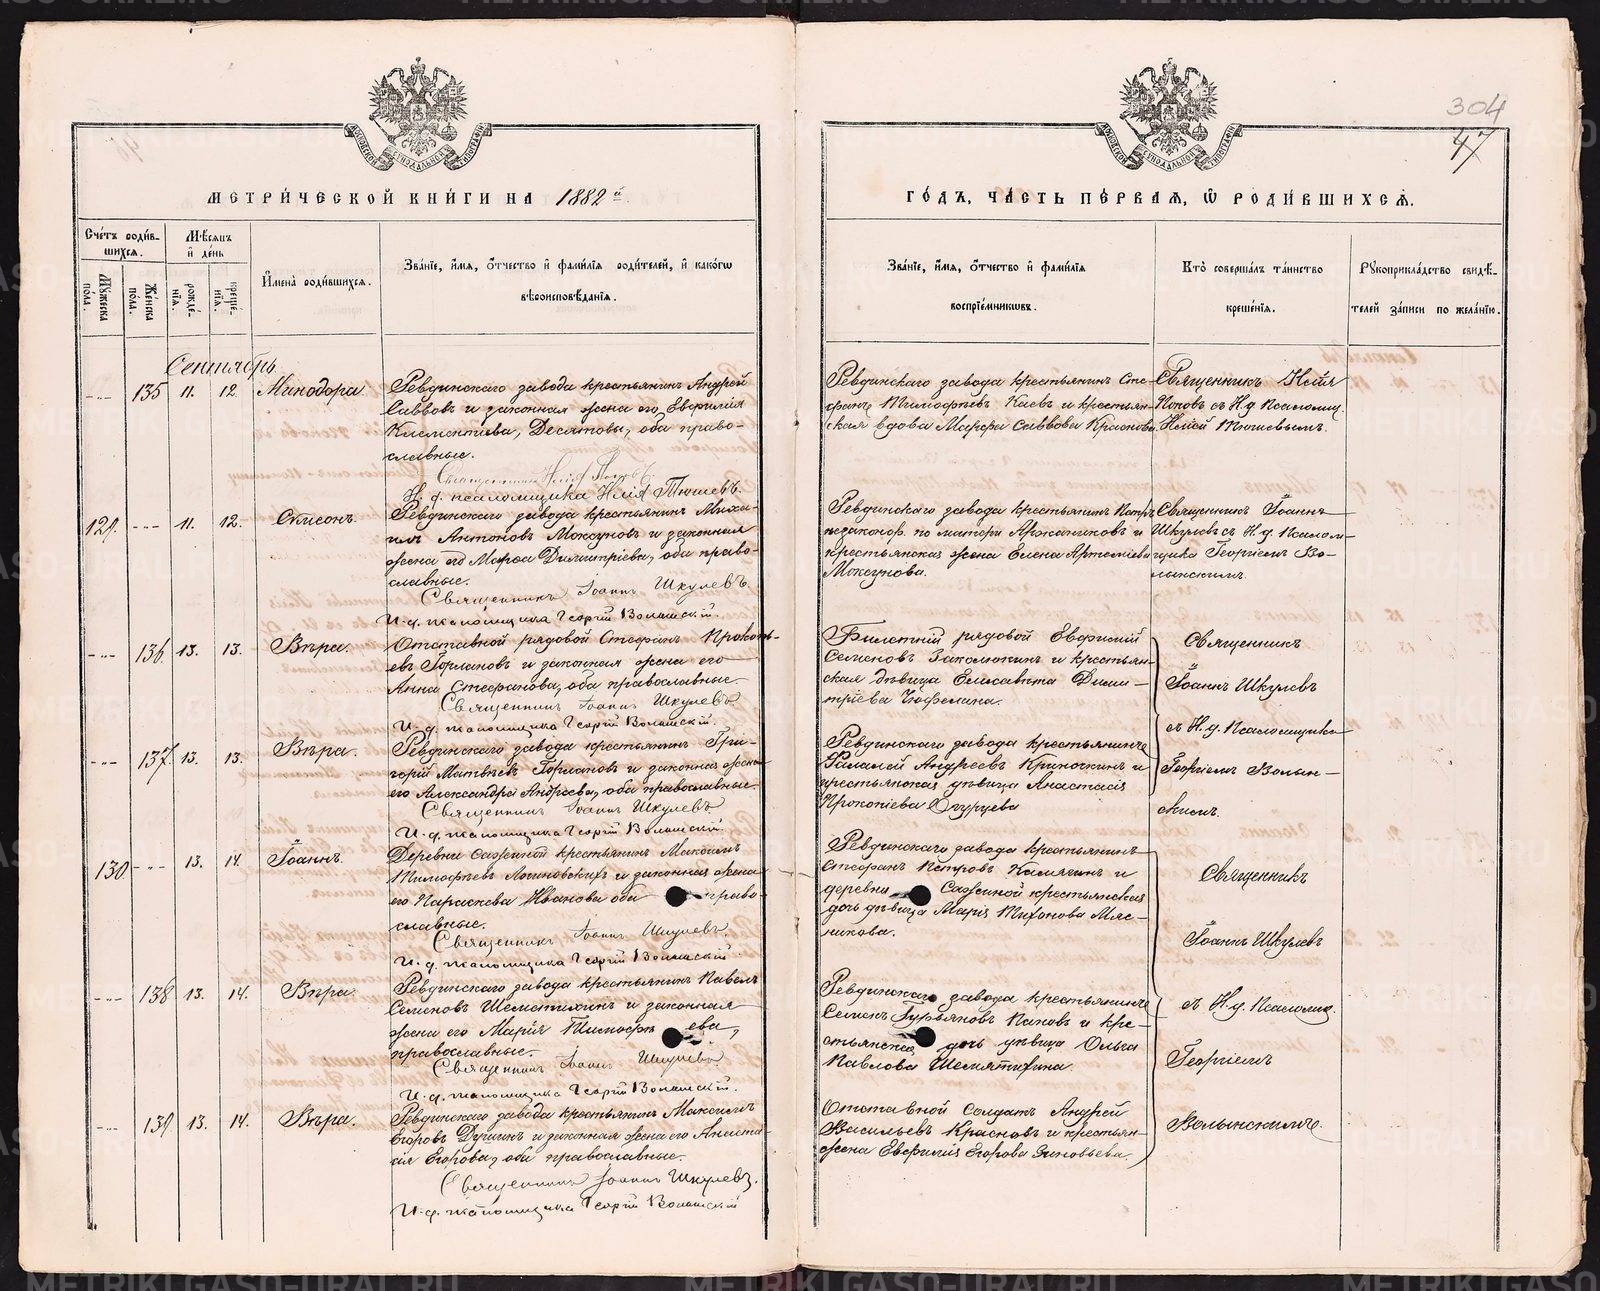 304
47
МЕТРИ́ЧЕСКОЙ КНИ́ГИ НА 1882й
ГО́ДЪ, ЧА́СТЬ ПЕ́РВАѦ, Ѿ РОДИ́ВШИХСѦ.
Сче́тъ роди́в-
шихсѧ.
Мѣ́сѧцъ
и҆ де́нь
Мꙋ́жеска
по́ла.
Же́нска
по́ла.
рожде́-
нїѧ.
креще́-
нїѧ.
И҆мена̀ роди́вшихсѧ.
Зва́нїе, и҆́мѧ, ѻ҆́тчество и҆ фами́лїѧ роди́телей, и҆ како́гѡ
вѣроисповѣ́данїѧ.
Зва́нїе, и҆́мѧ, ѻ҆́тчество и҆ фами́лїѧ
воспрїе́мникѡвъ.
Кто̀ соверша́лъ та́инство
креще́нїѧ.
Рꙋкоприкла́дство свидѣ́-
телей за́писи по жела́нїю.
Сентябрь
135 11. 12. Минодора.
Ревдинскаго завода крестьянинъ Андрей
Саввовъ и законная жена его Евфимія
Климентиева, Десятовы, оба право-
славные.
Священникъ Илія Поповъ.
И. д. псаломщика Илія Тюшевъ.
Ревдинскаго завода крестьянинъ Сте-
фанъ Тимофѣевъ Каевъ и крестьян-
ская вдова Марфа Саввова Краснова.
Священникъ Илія
Поповъ съ И. д. Псаломщ.
Иліей Тюшевымъ.
129. 11. 12. Симеонъ.
Ревдинскаго завода крестьянинъ Миха-
илъ Антоновъ Мокгуновъ и законная
жена его Марфа Димитріева, оба право-
славные.
Священникъ Іоаннъ Шкулевъ.
И. д. псаломщика Георгій Волынскій.
Ревдинскаго завода крестьянинъ Петръ
незаконор. по матери Аржанниковъ и
крестьянская жена Елена Артеміева
Мокгунова.
Священникъ Іоаннъ
Шкулевъ съ И. д. Псалом-
щика Георгіемъ Во-
лынскимъ.
136. 13. 13. Вѣра.
Отставной рядовой Стефанъ Прокопь-
евъ Горлановъ и законная жена его
Анна Стефанова, оба православные.
Священникъ Іоаннъ Шкулевъ
И. д. псаломщика Георгій Волынскій.
Билетный рядовой Евфимий
Семеновъ Заколюкинъ и крестьян-
ская дѣвица Елисавета Дими-
тріева
Священникъ
Іоаннъ Шкулевъ
137. 13. 13. Вѣра.
Ревдинскаго завода крестьянинъ Гри-
горій Матвѣевъ Горлановъ и законная жена
его Александра Андреева, оба православные.
Священникъ Іоаннъ Шкулевъ
И. д. псаломщика Георгій Волынскій
Ревдинскаго завода крестьянинъ
Фалалей Андреевъ Криночкинъ и
крестьянская дѣвица Анастасія
Прокопіева Огурцева
съ И. д. Псаломщика
Георгіемъ Волын-
скимъ.
130 13. 14. Іоаннъ.
Деревни Сажиной крестьянинъ Максимъ
Тимофѣевъ Логиновскихъ и законная жена
его Параскева Иванова оба право-
славные.
Священникъ Іоаннъ Шкулевъ.
И. д. псаломщика Георгій Волынскій.
Ревдинскаго завода крестьянинъ
Стефанъ Петровъ Камягинъ и
деревни Сажиной крестьянская
дочь дѣвица Марія Тихонова Мяс-
никова.
Священникъ
Іоаннъ Шкулевъ
138 13. 14. Вѣра.
Ревдинскаго завода крестьянинъ Павелъ
Семеновъ Шемятихинъ и законная
жена его Марія Тимофѣева,
православные.
Священникъ Іоаннъ Шкулевъ
И. д. псаломщика Георгій Волынскій.
Ревдинскаго завода крестьянинъ
Семенъ Гурьяновъ Поповъ и кре-
стьянская дочь дѣвица Ольга
Павлова Шемятихина.
съ И. д. Псаломщ.
Георгіемъ
139 13. 14. Вѣра.
Ревдинскаго завода крестьянинъ Максимъ
Егоровъ и законная жена его Анаста-
сія Егорова, оба православные.
Священникъ Іоаннъ Шкулевъ.
И. д. псаломщика Георгій Волынскій
Отставной Солдатъ Андрей
Васильевъ Красновъ и крестьян-
жена Евфимія Егорова Зиновьева.
Волынскимъ
METRIKI.GASO-URAL.RU